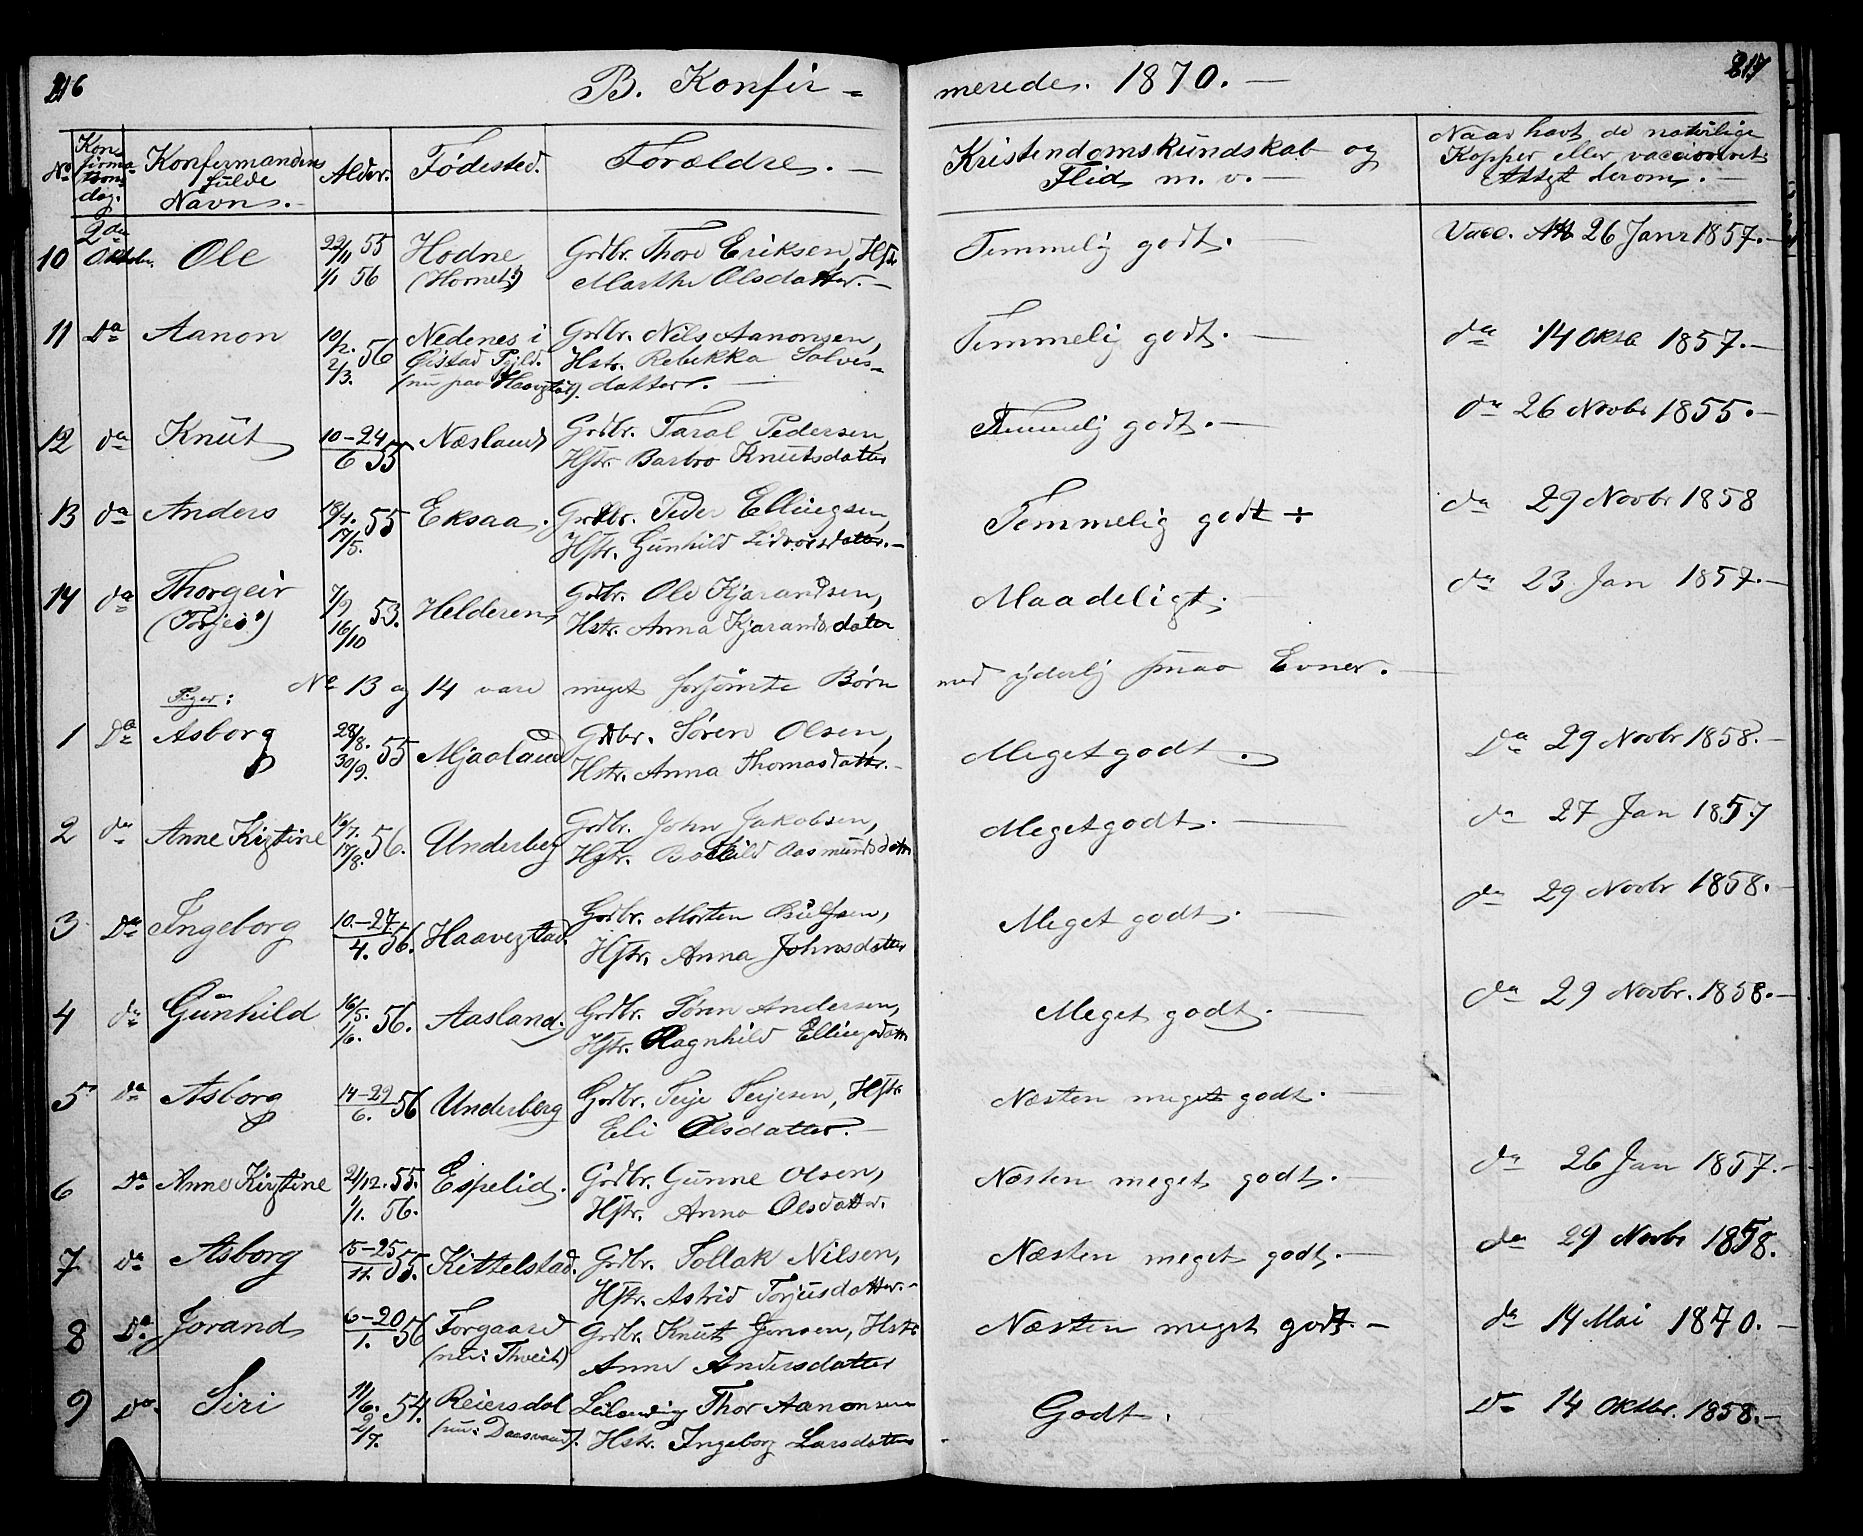 216
B. Konfir-
merede. 1870.
217
No
Konfirmationsdag.
Konfirmandens fulde Navn.
Alder.
Fødested.
Forældre.
Kristendomskundskab og Flid m. v.
Naar havt de naturlige Kopper eller vaccineret Attest derom.
10 2den Oktobr. Ole 22/11 55 1/1 56 Hodne (Hornet?) Grdbr. Thore Eriksen, Hstr. Marthe Olsdatter. Temmelig godt. Vacc. Att 26 Janr 1857.
11 Do Aanon 10/2. 56 2/3. Nedenes i Øistad Pgjld. (nu paa Haavegstad). Grdbr. Nils Aanonsen, Hstr. Rebekka Salvesdatter. Temmelig godt. do 14 Oktb 1857.
12 do Knut 10-24/6 55 Næsland Grdbr. Taral Pedersen, Hstr. Barbro Knutsdatter Temmelig godt. do 26 Novbr 1855.
13 do Anders 18/4. 55 17/5. Eksaa. Grdbr. Peder Ellingsen, Hstr. Gunhild Lidvorsdatter. Temmelig godt ÷ do 29 Novbr 1858
14 do Thorgeir (Torjei?) 7/9 53. 16/10 Helderen Grdbr. Ole Kjarandsen, Hstr. Anna Kjarandsdatter Maadeligt. do 23 Jan 1857.
No 13 og 14 vare meget forsømte Børn med yderlig smaa Evner.
Piger:
1 Do Asborg 28/8. 55 30/9. Mjaaland Grdbr. Søren Olsen, Hstr. Anna Thomasdattr. Meget godt. Do 29 Novbr 1858.
2 do Anne Kirstine 16/7. 56. 17/8. Underberg Grdbr. John Jakobsen, Hstr. Aasmundsdattr Meget godt. do 27 Jan 1857
3 Do Ingeborg 10-27/4. 56. Haavegstad. Grdbr. Morten Hstr. Anna Johnsdatter Meget godt. do 29 Novbr 1858.
4 do Gunhild 16/5. 56. 1/6. Aasland. Grdbr. Søren Andersen, Hstr. Ragnhild Ellingsdattr Meget godt. do 29 Novbr. 1858.
5 do Asborg 14-29/6. 56 Underberg Grdbr. Teije Teijesen, Hstr. Eli Olsdatter. Næsten meget godt.
6 Do Anne Kirstine 21/12. 55. 1/1. 56. Espelid. Grdbr. Gunne Olsen, Hstr. Anna Olsdatter. Næsten meget godt. do 26 Jan 1857.
7 do Asborg 15-25/11. 55. Kittelstad. Grdbr. Tollak Nilsen, Hstr. Astrid Torjusdatter. Næsten meget godt. do 29 Novbr 1858.
8 Do Jorand 6-20/1. 56 Torgaard (nu: Thveit) Grdbr. Knut Jensen, Hstr. Anne Andersdatter Næsten meget godt. do 14 Mai 1870.
9 Do Siri 11/6. 54. 2/7. Reiersdal (nu: Daasvand). Leilending Thor Aanonsen Hstr. Ingeborg Larsdatter Godt. Do 14 Oktbr. 1858.